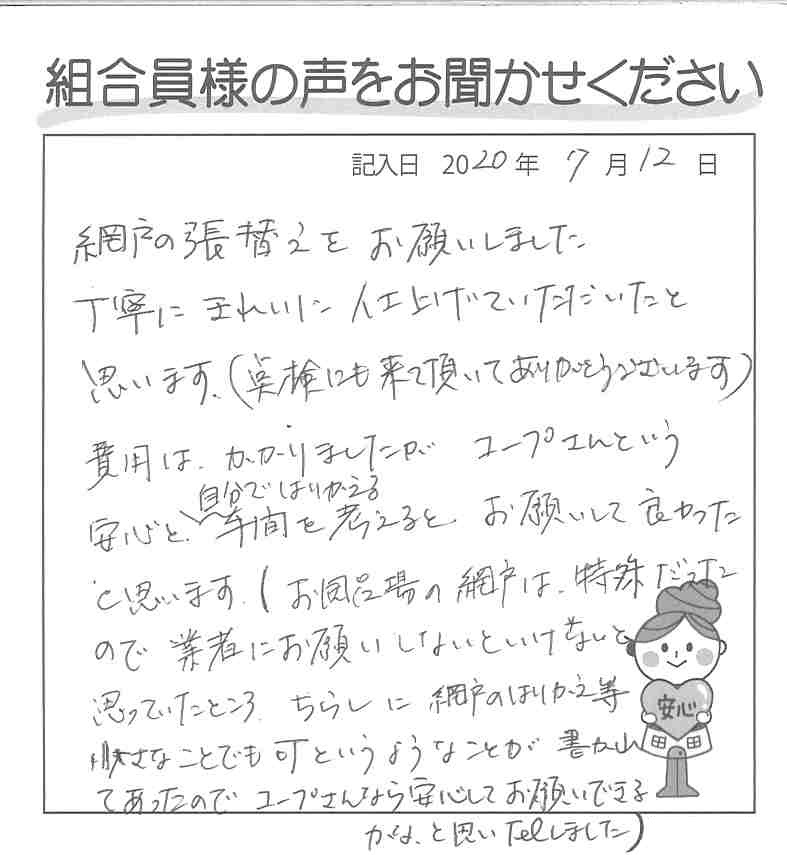 組合員様の声をお聞かせください
記入日 2020年 7月12日
網戸の張替えを お願いしました
丁寧に きれいに 仕上げていただいたと
思います。(点検にも来て頂いてありがとうございます)
費用は、かかりましたが コープさんという
自分ではりかえる
安心と、手間を考えると、お願いして良かった
と思います。(お風呂場の網戸は、特殊だった
ので 業者にお願いしないといけないと
思っていたところ、ちらしに 網戸のはりかえ等
小さなことでも可というようなことが 書かれ
てあったので コープさんなら安心してお願いできる
かな、と思いTelしました)
安心